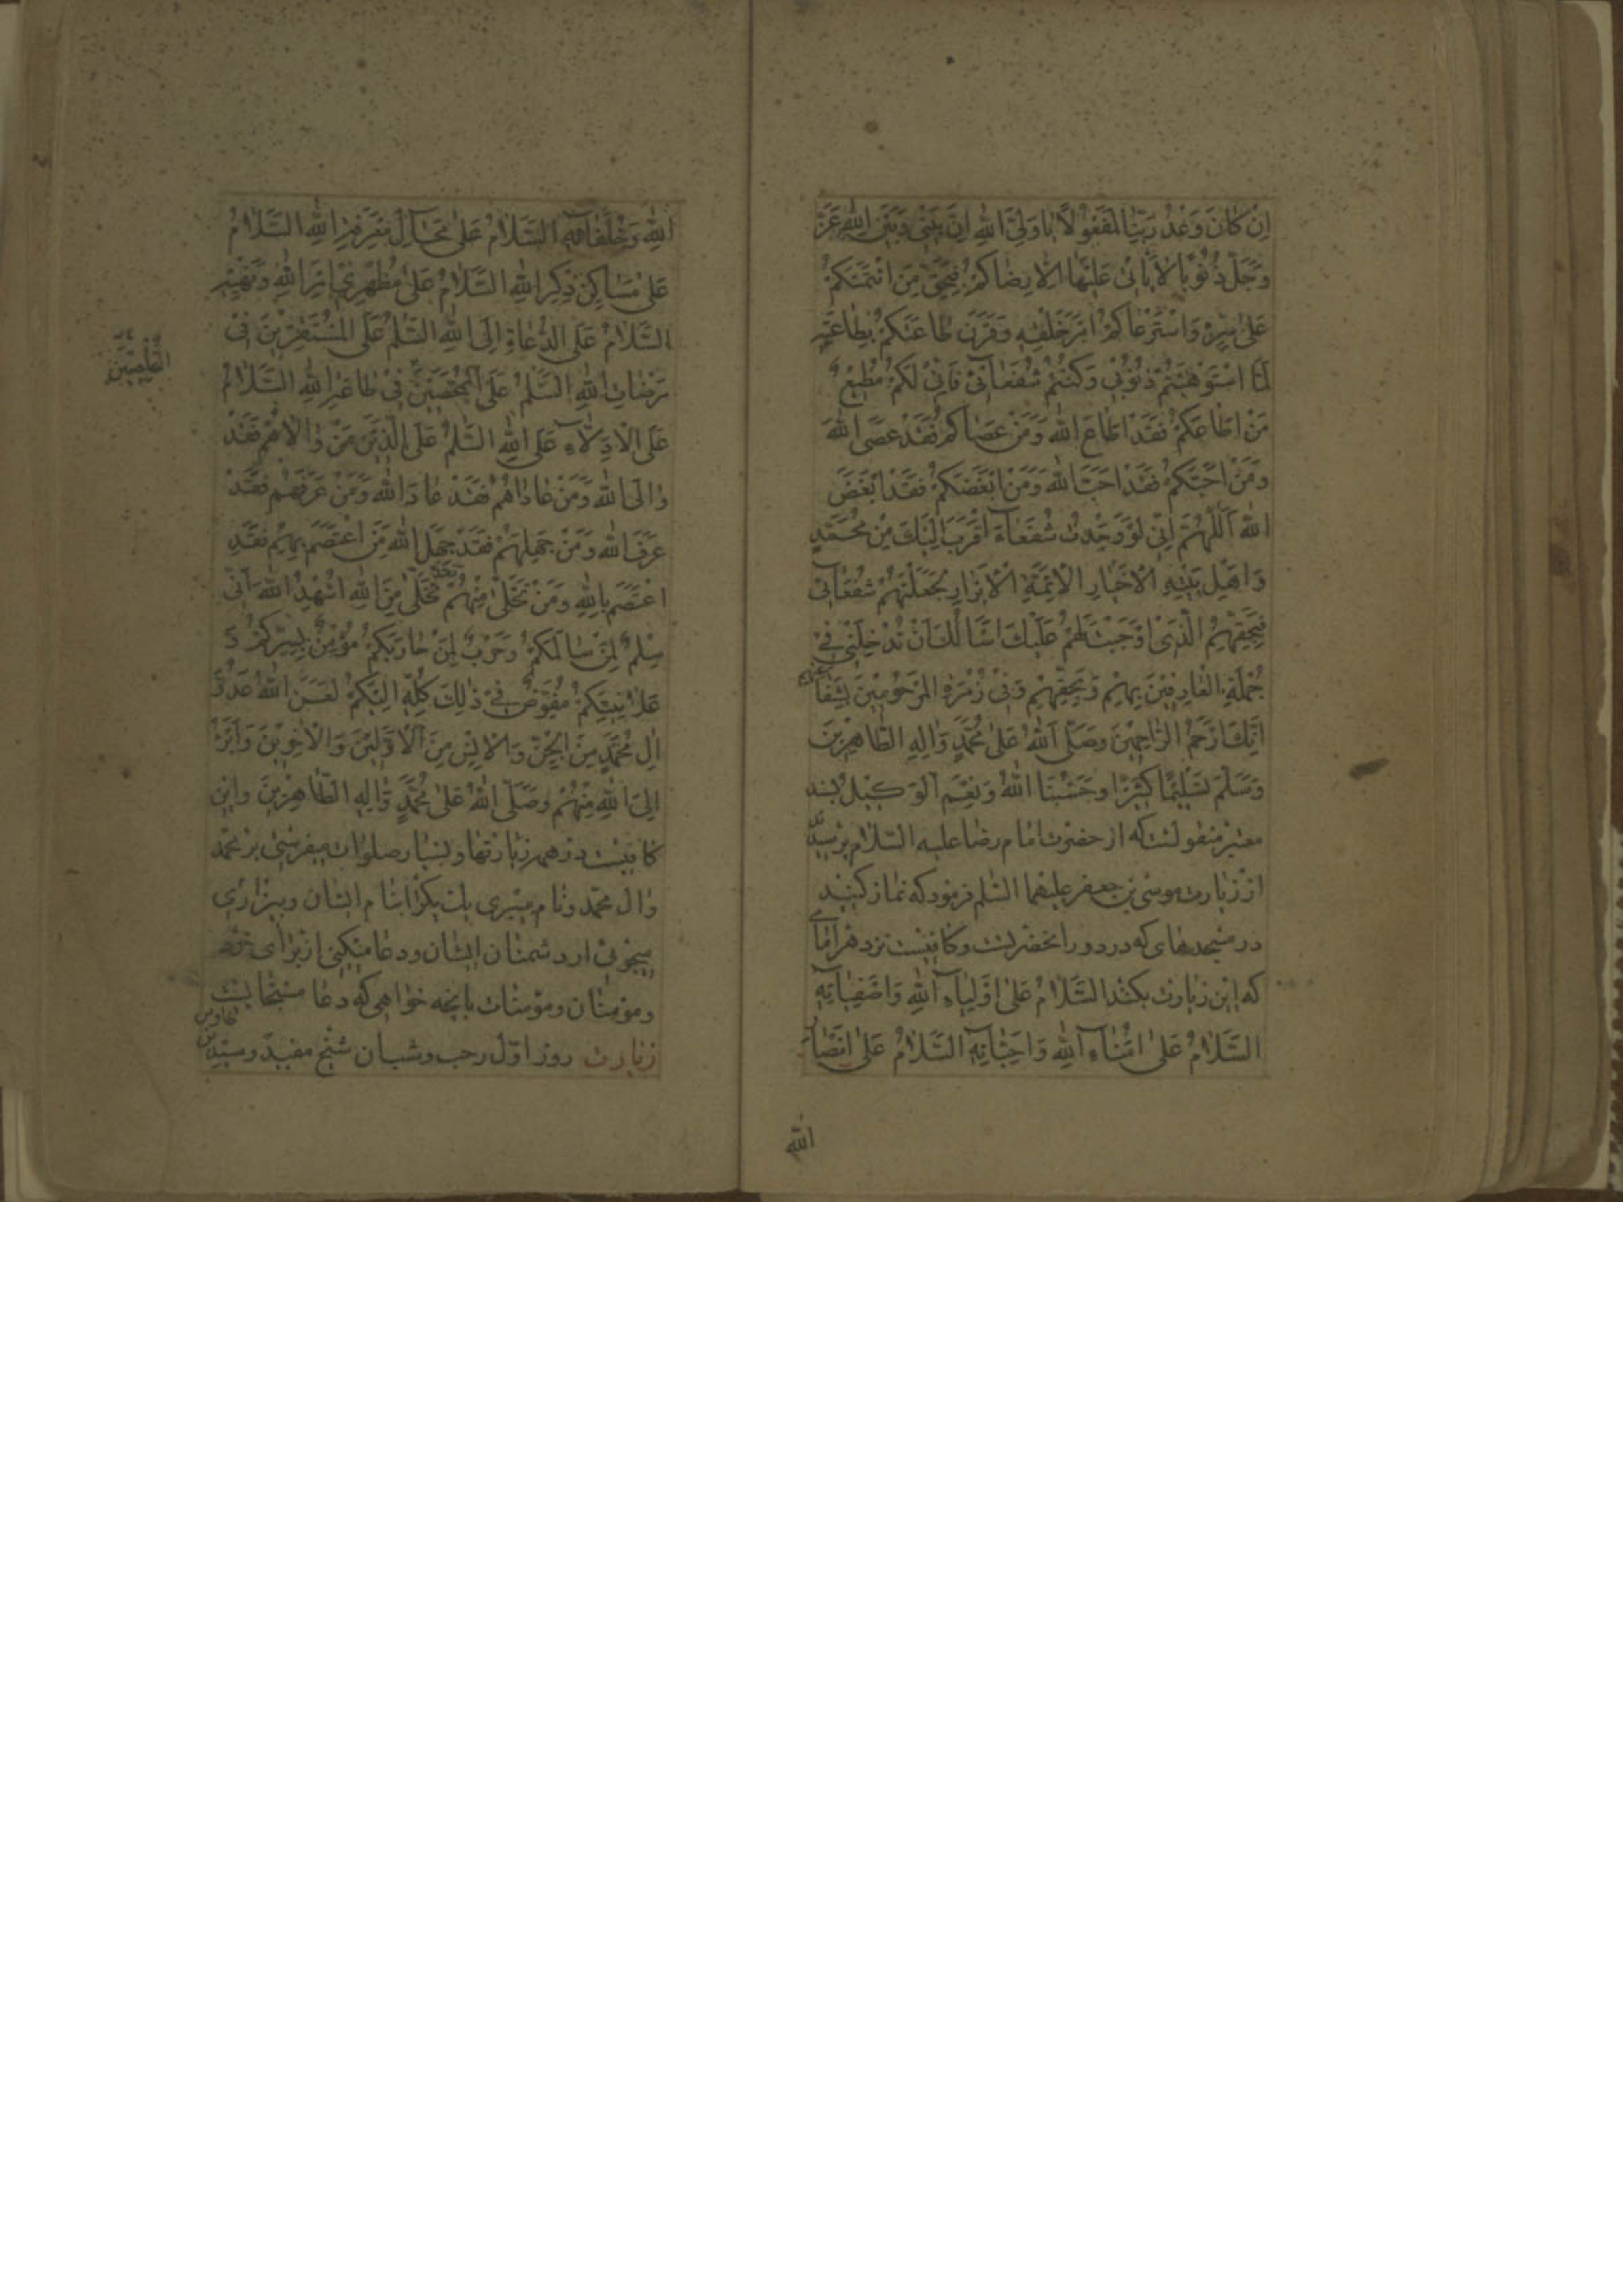 اِنْ كٰانَ وَعْدُ رَبِّنٰا لَمَفْعُولًا يٰا وَلِيَّ اللهِ اِنَّ بَيْنِي وَبَيْنَ اللهِ عَزَّ
وَجَلَّ ذُنُوبًا لٰا يَأْتِي عَلَيْهٰا اِلّٰا رِضٰاكُمْ فَبِحَقِّ مَنِ ائْتَمَنَكُمْ
عَلٰى سِرِّهِ وَاسْتَرْعٰاكُمْ اَمْرَ خَلْقِهِ وَقَرَنَ طٰاعَتَكُمْ بِطٰاعَتِهِ
لَمَّا اسْتَوْهَبْتُمْ ذُنُوبِي وَكُنْتُمْ شُفَعٰٓائِي فَاِنِّي لَكُمْ مُطِيعٌ
مَنْ اَطٰاعَكُمْ فَقَدْ اَطٰاعَ اللهَ وَمَنْ عَصٰاكُمْ فَقَدْ عَصَى اللهَ
وَمَنْ اَحَبَّكُمْ فَقَدْ اَحَبَّ اللهَ وَمَنْ اَبْغَضَكُمْ فَقَدْ اَبْغَضَ
اللهَ اَللّٰهُمَّ اِنِّي لَوْ وَجَدْتُ شُفَعٰٓاءَ اَقْرَبَ اِلَيْكَ مِنْ مُحَمَّدٍ
وَاَهْلِ بَيْتِهِ الْاَخْيٰارِ الْاَئِمَّةِ الْاَبْرٰارِ لَجَعَلْتَهُمْ شُفَعٰٓائِي
فَبِحَقِّهِمُ الَّذِي اَوْجَبْتَ لَهُمْ عَلَيْكَ اَسْأَلُكَ اَنْ تُدْخِلَنِي فِي
جُمْلَةِ الْعٰارِفِينَ بِهِمْ وَبِحَقِّهِمْ وَفِي زُمْرَةِ الْمَرْحُومِينَ بِشَفٰاعَتِهِمْ
اِنَّكَ اَرْحَمُ الرّٰاحِمِينَ وَصَلَّى اللهُ عَلٰى مُحَمَّدٍ وَاٰلِهِ الطّٰاهِرِينَ
وَسَلَّمَ تَسْلِيمًا كَثِيرًا وَحَسْبُنَا اللهُ وَنِعْمَ الْوَكِيلُ بسند
معتبر منقولست که از حضرت امام رضا علیه السلام پرسیدند
از زیارت موسی بن جعفر علیهما السلم فرمود که نماز کنید
در مسجدهای که در دور آنحضرتست و کافیست نزد هر امامی
که این زیارت بکنند السَّلٰامُ عَلٰى اَوْلِيٰآءِ اللهِ وَاَصْفِيٰآئِهِ
السَّلٰامُ عَلٰى اُمَنٰآءِ اللهِ وَاَحِبّٰآئِهِ السَّلٰامُ عَلٰى اَنْصٰارِ
الله
اللهِ وَخُلَفٰآئِهِ السَّلٰامُ عَلٰى مَحٰآلِّ مَعْرِفَةِ اللهِ السَّلٰامُ
عَلٰى مَسٰاكِنِ ذِكْرِ اللهِ السَّلٰامُ عَلٰى مُظْهِرِي اَمْرِ اللهِ وَنَهْيِهِ
السَّلٰامُ عَلَى الدُّعٰاةِ اِلَى اللهِ السَّلٰمُ عَلَى الْمُسْتَقِرِّينَ فِي
مَرْضٰاتِ اللهِ السَّلٰمُ عَلَى الْمُمَحَّصِينَ فِي طٰاعَةِ اللهِ السَّلٰامُ
عَلَى الْاَدِلّٰآءِ عَلَى اللهِ السَّلٰمُ عَلَى الَّذِينَ مَنْ وٰالٰاهُمْ فَقَدْ
وٰالَى اللهَ وَمَنْ عٰادٰاهُمْ فَقَدْ عٰادَ اللهَ وَمَنْ عَرَفَهُمْ فَقَدْ
عَرَفَ اللهَ وَمَنْ جَهِلَهُمْ فَقَدْ جَهِلَ اللهَ مَنِ اعْتَصَمَ بِهِمْ فَقَدِ
اعْتَصَمَ بِاللهِ وَمَنْ تَخَلّٰى مِنْهُمْ فَقَدْ تَخَلّٰى مِنَ اللهِ اُشْهِدُ اللهَ اَنِّي
سِلْمٌ لِمَنْ سٰالَمَكُمْ وَحَرْبٌ لِمَنْ حٰارَبَكُمْ مُؤْمِنٌ بِسِرِّكُمْ وَ
عَلٰانِيَتِكُمْ مُفَوِّضٌ فِي ذٰلِكَ كُلِّهِ اِلَيْكُمْ لَعَنَ اللهُ عَدُوَّ
اٰلِ مُحَمَّدٍ مِنَ الْجِنِّ وَالْاِنْسِ مِنَ الْاَوَّلِينَ وَالْاٰخِرِينَ وَاَبْرَأُ
اِلَى اللهِ مِنْهُمْ وَصَلَّى اللهُ عَلٰى مُحَمَّدٍ وَاٰلِهِ الطّٰاهِرِينَ و این
کافیست در همه زیارتها و بسیار صلوات میفرستی بر محمد
و آل محمد و نام میبری یک یک را بنام ایشان و بیزاری
میجوئی از دشمنان ایشان و دعا میکنی از برای خود
و مؤمنان و مؤمنات بآنچه خواهی که دعا مستجابست
زیارت روز اول رجب و شعبان شیخ مفید و سید بن طاوس